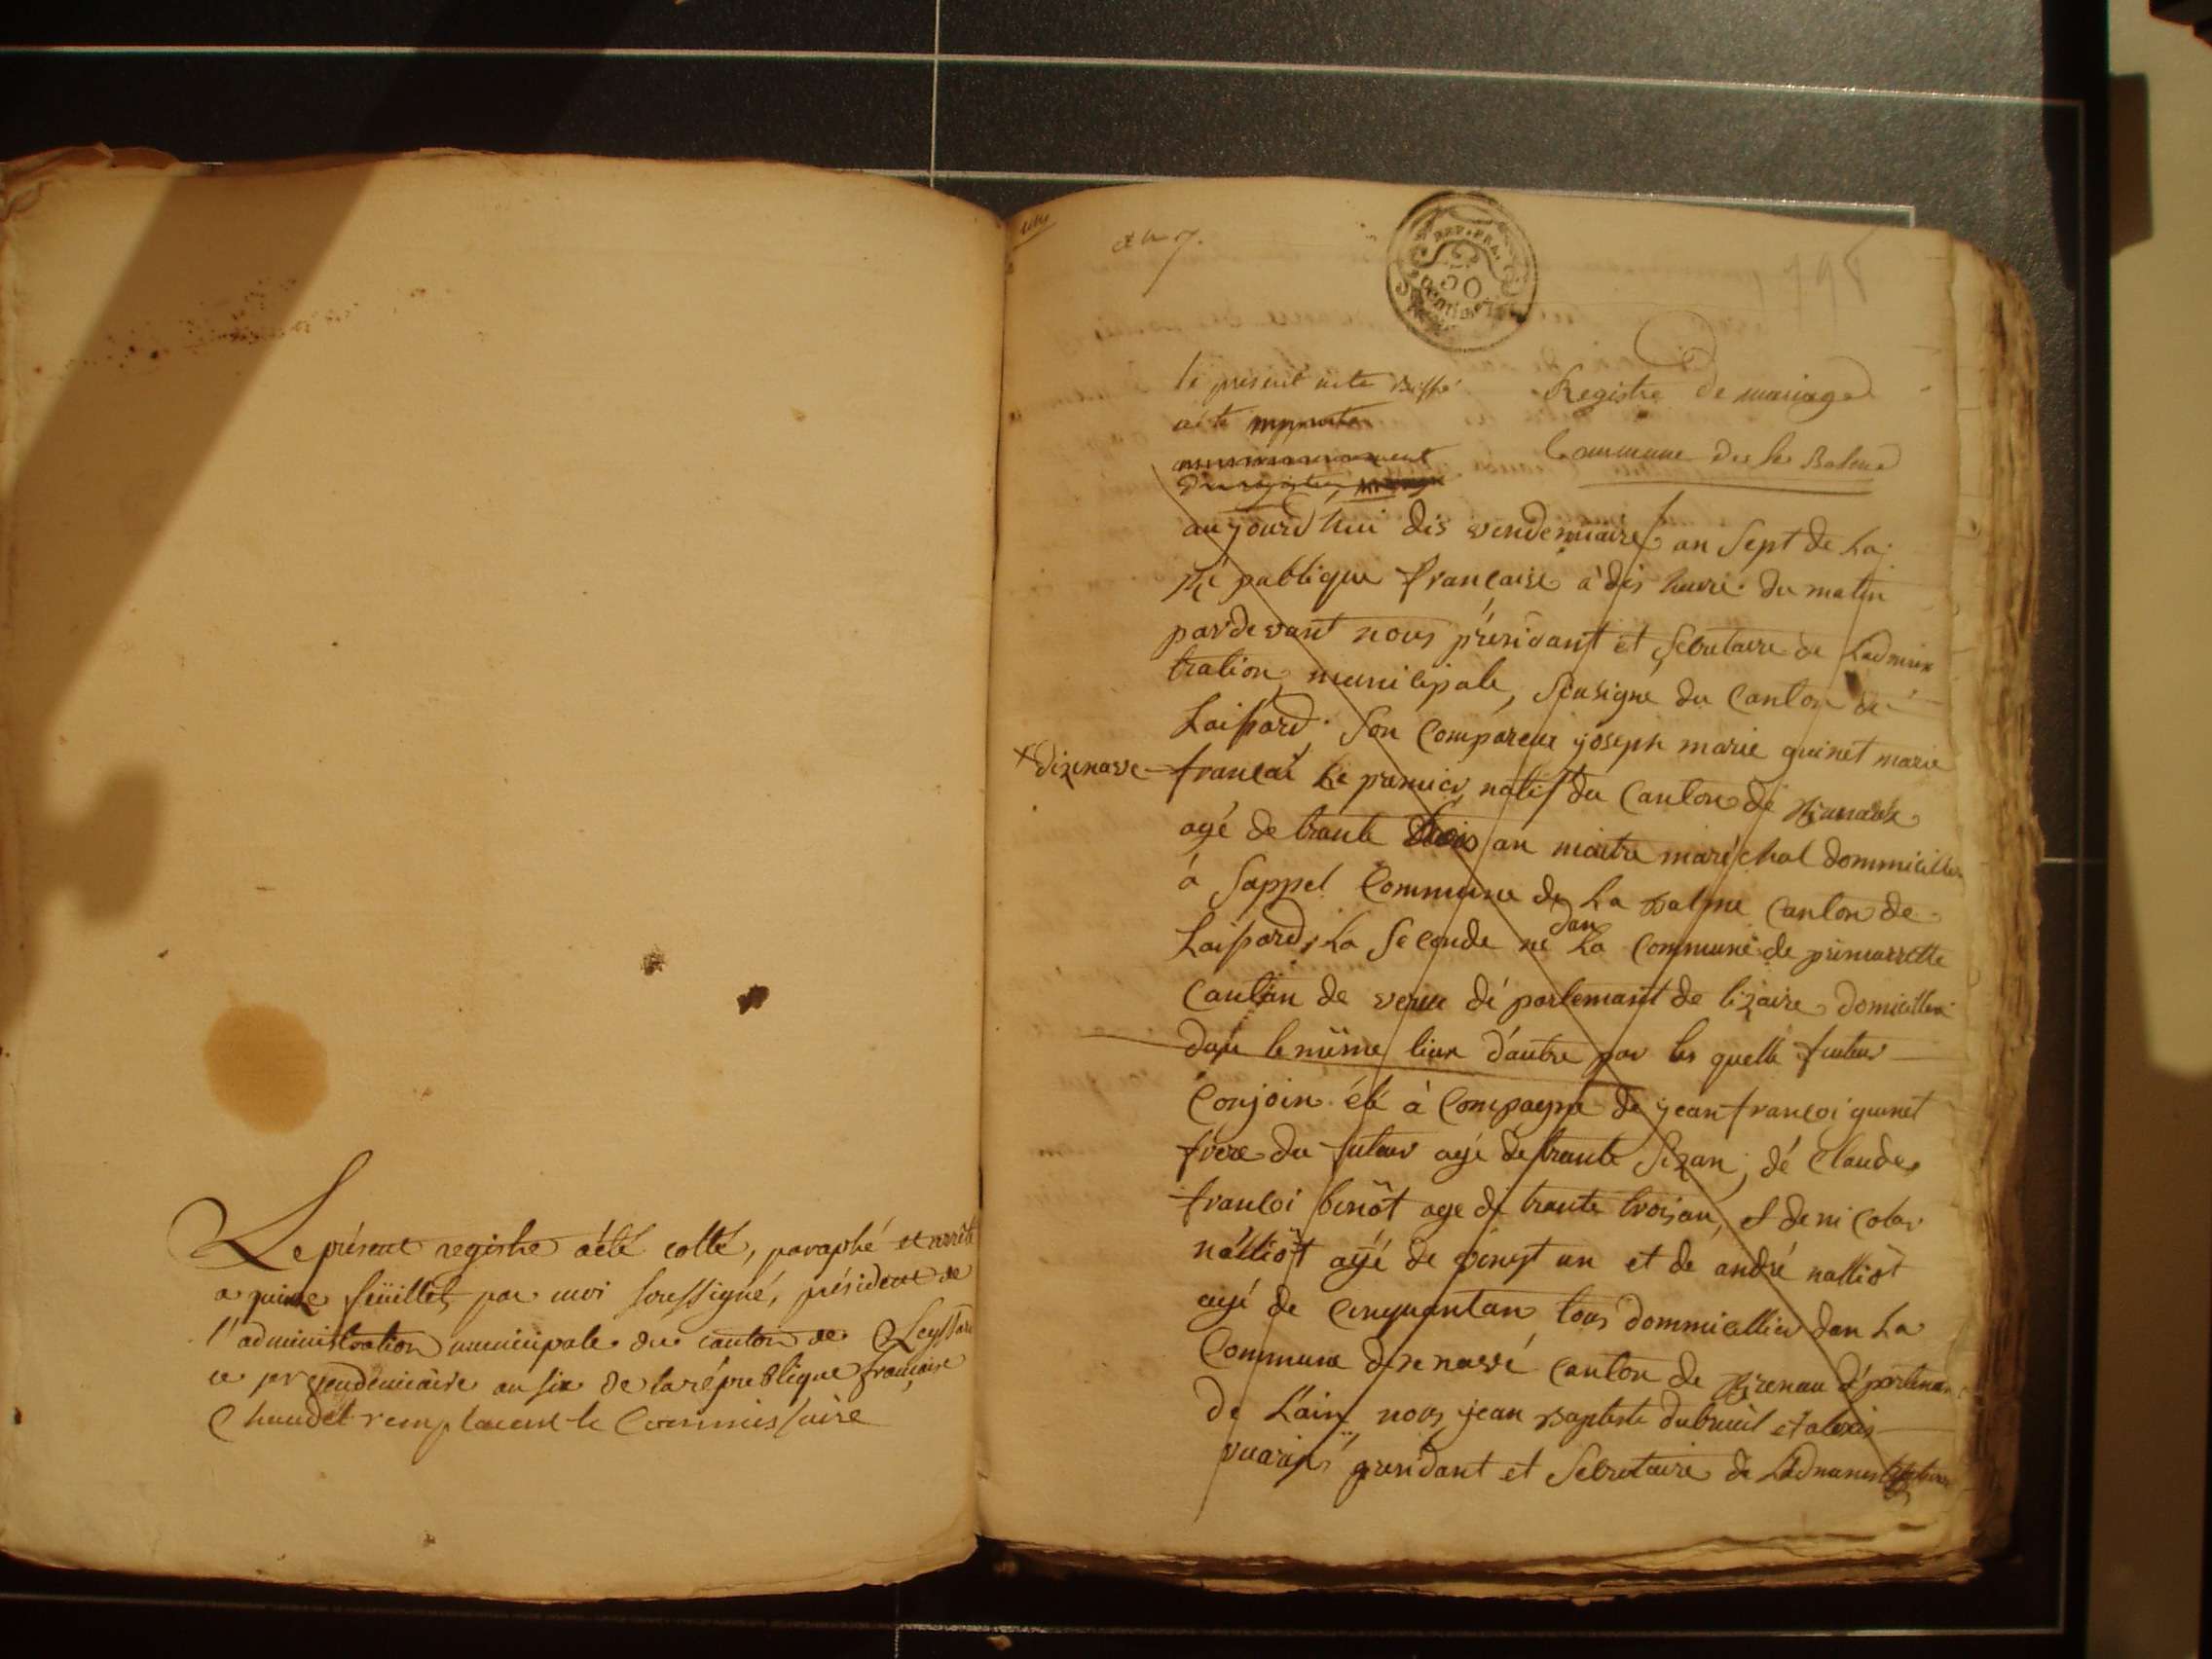 Le présent registre a été cotté, paraphé et arrêté
a quinze feüillets par moi soussigné, président de
l'administration municipale du canton de Leyssard
ce per vendemiaire an six de la république française
Chaudet remplacent le Commissaire
an 7.
REP. FRA.
50
centimes
198
le present acte Biffé
Registre de mariage
Commune des la Balme
aujourd'hui dis vendemiaire an sept de La
Ré publique française à dis heure du matin
pardevant nous présidant et Secretaire de Ladminis
tration municipale, Sousigné du Canton de
Laissard. Son Compareue joseph marie guinet marie
x dizenave françoi Le pramier natif du Canton de
agé de trante trois an maitre maréchal dommicillie
à Sappel Commune de La Balme Canton de
Laissard, La Seconde né dan La Commune de primarrette
Canton de dé partemant de lizaire domicillié
dan le même lieux d'autre par les quelle futur
Conjoin. été à Compagne de jean françoi guinet
frère du futur agé de trante Sizan, dé Claude
françoi benôt age de trante troisan, et de nicolas
nalliot agé de vinest an et de andré nalliot
agé de Cinquantan tous dommicillier dan La
Commune dizenavé Canton de departeman
De Lain, nous jean Baptiste dubreuil et alexis
vuarin présidant et Secretaire de